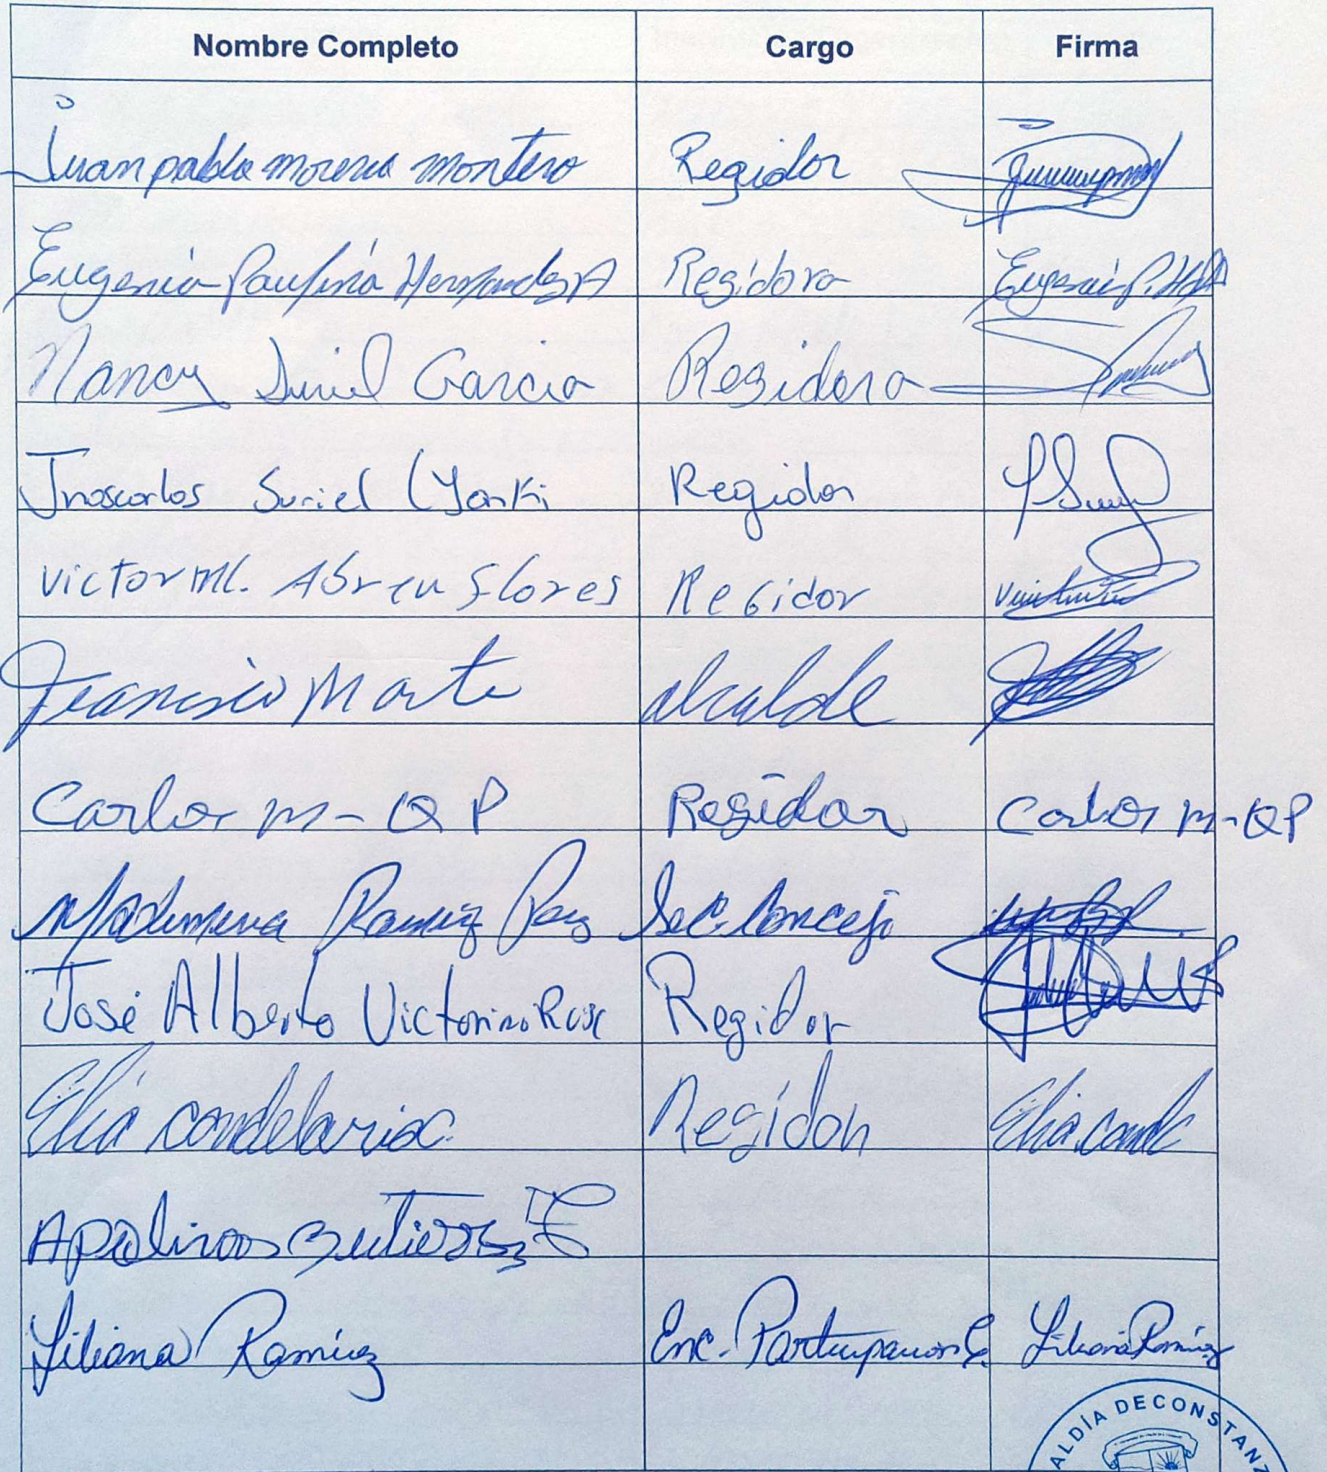 Nombre Completo Cargo Firma
Juan pablo moreno montero Regidor
Eugenia Paulina Hernandez A Regidora Eugenia P. H
Nancy Suriel Garcia Regidora
Jnoscarlos Suriel (Yanki Regidor
Victor Ml. Abreu Flores Regidor
Francisco Marte alcalde
Carlos M-QP Regidor Carlos M-QP
Ramirez Sec. Concejo
José Alberto Victorino Regidor
Elia candelaria Regidor Elia cande
Apolinar Gutierrez
Liliana Ramirez Enc. Participacion C. Liliana Ramirez
ALDÍA DE CONSTANZ